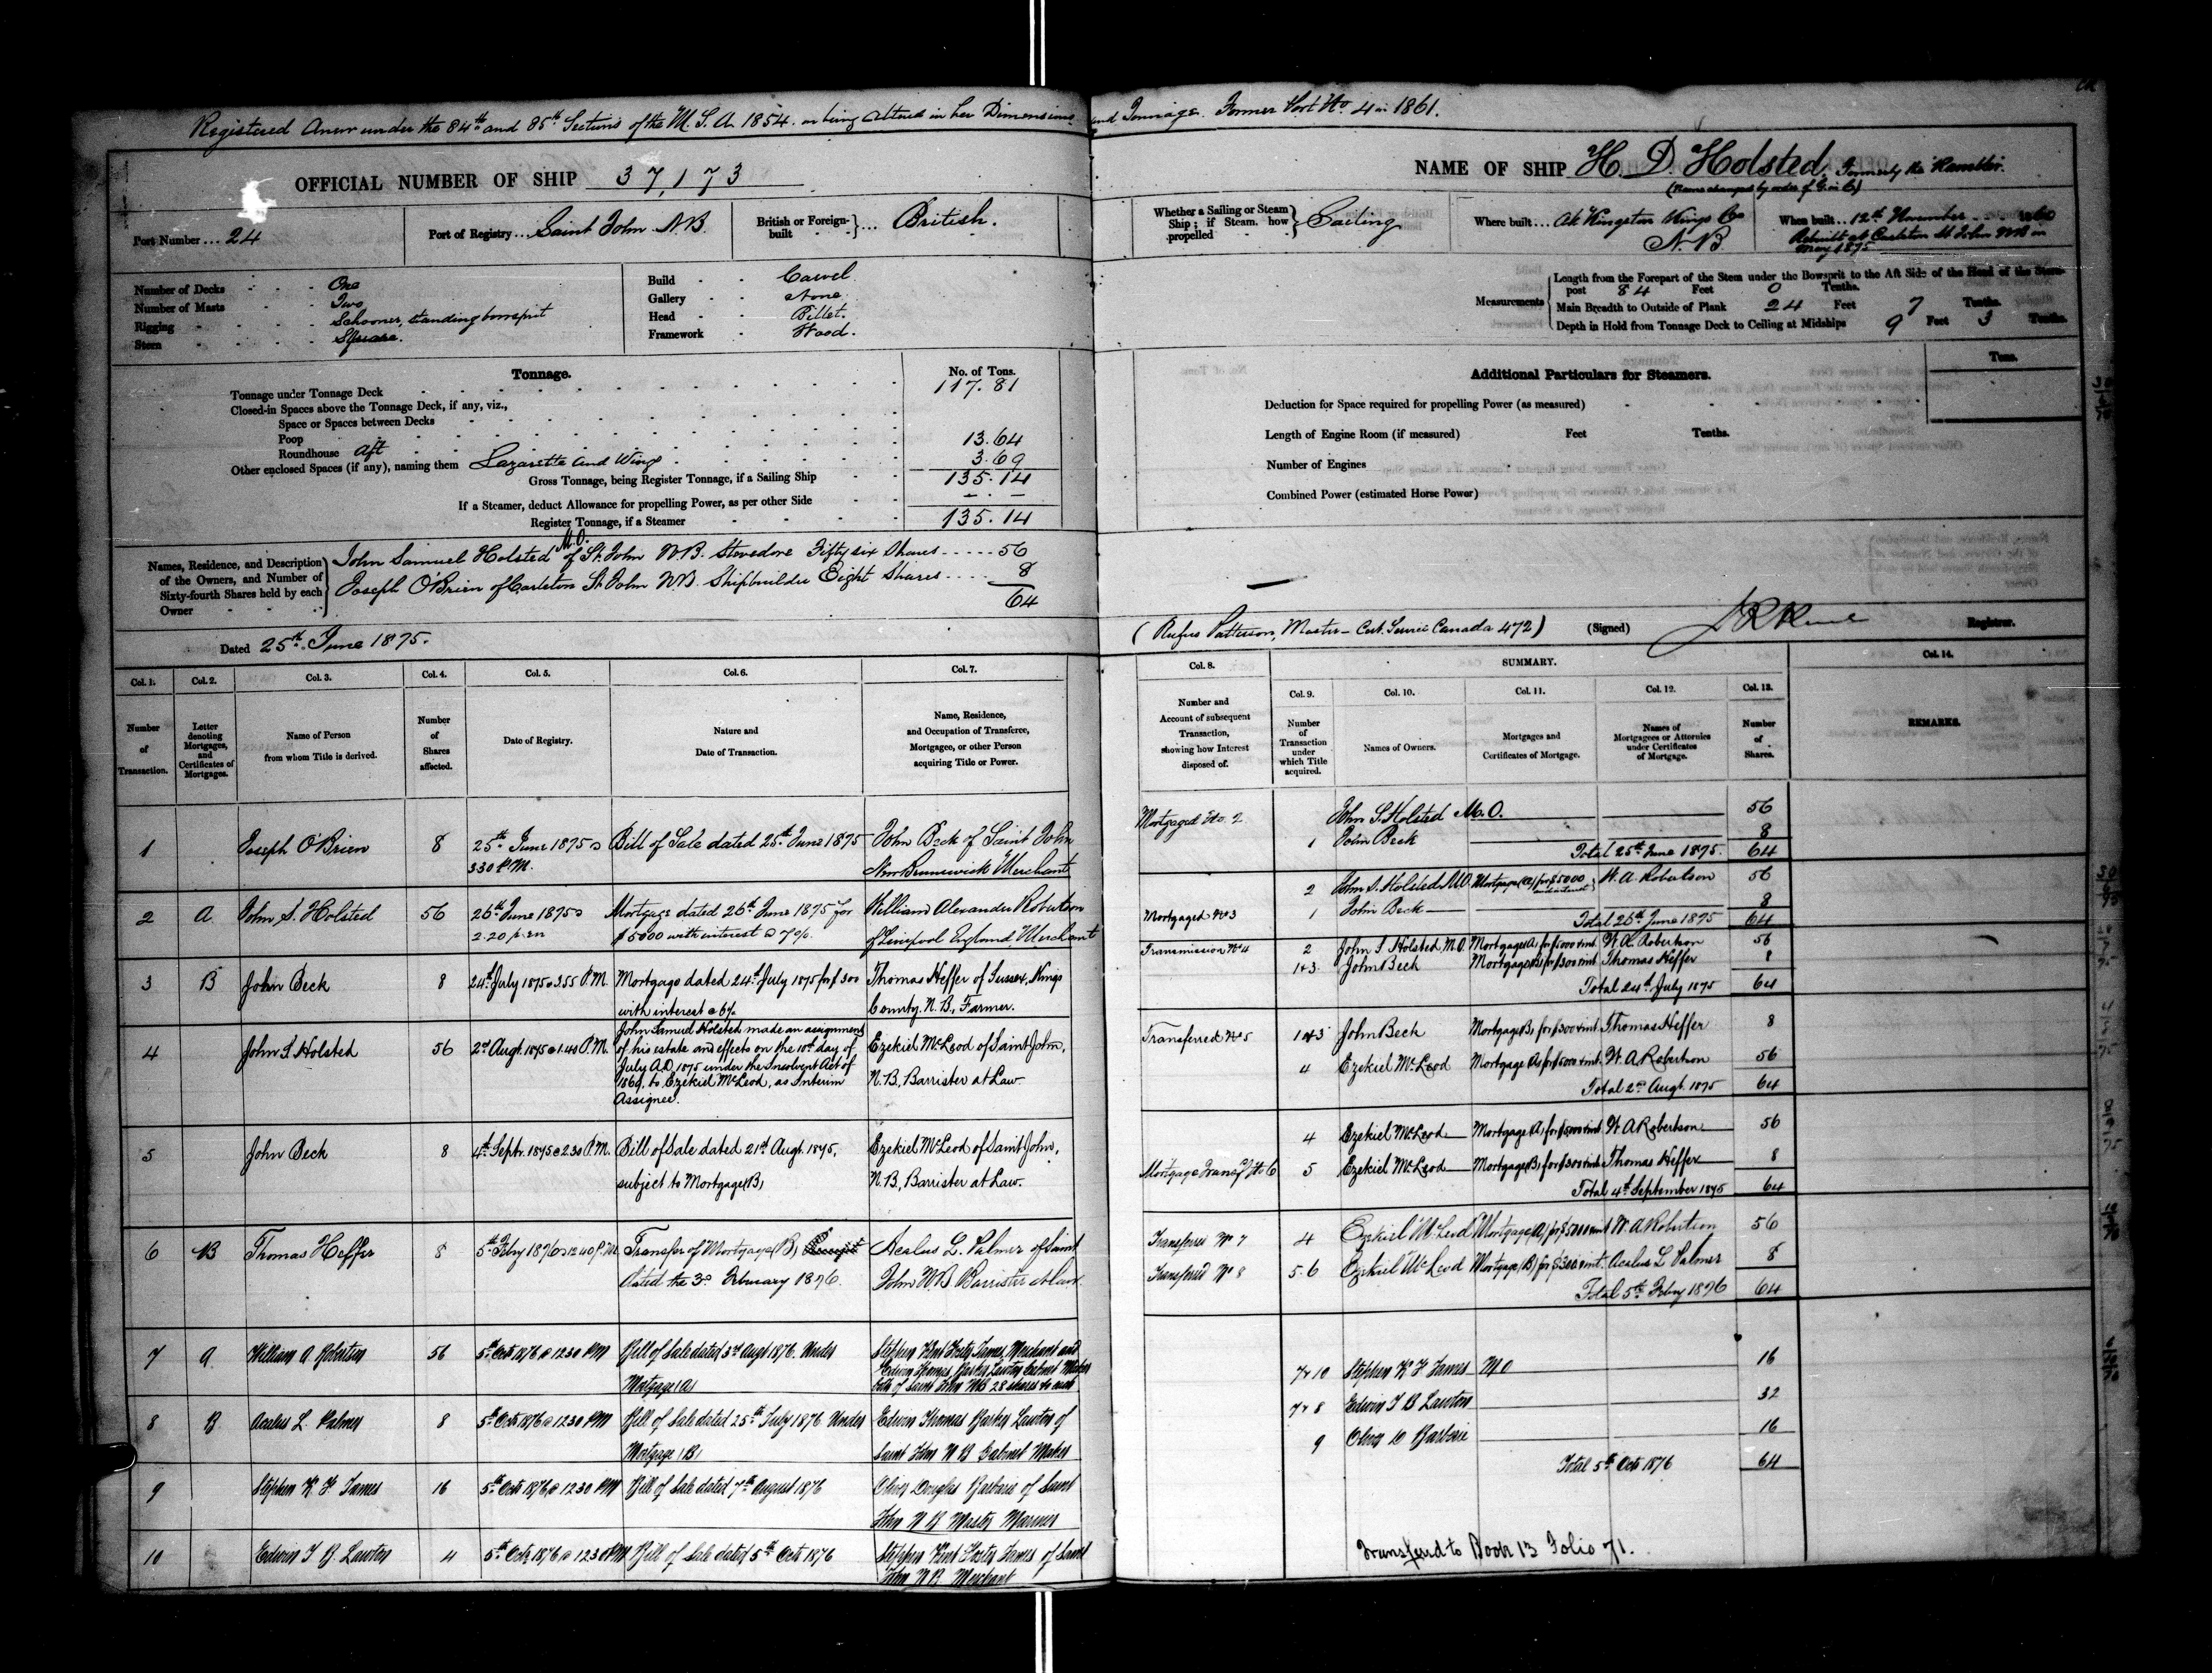 Registered Anew under the 84th and 85th Sections of the M. S. A. 1854. on being altered in her Dimensions and Tonnage. Former Port No 4 in 1861.
OFFICIAL NUMBER OF SHIP 37,173
NAME OF SHIP H. D. Holsted. Formerly the Rambler.
(Name changed by order of G. in C.)
Port Number ... 24
Port of Registry ... Saint John N.B.
British or Foreign-built ... British.
Whether a Sailing or Steam Ship; if Steam, how propelled Sailing
Where built ... At Kingston Kings Co N.B
When built ... 12th November 1860
Rebuilt at Carleton St John NB in May 1875
Number of Decks One
Number of Masts Two
Rigging Schooner, standing bowsprit
Stern Square.
Build Carvel
Gallery None
Head Billet.
Framework Wood.
Measurements
Length from the Forepart of the Stem under the Bowsprit to the Aft Side of the Head of the Stern-
post 84 Feet 0 Tenths.
Main Breadth to Outside of Plank 24 Feet 7 Tenths.
Depth in Hold from Tonnage Deck to Ceiling at Midships 9 Feet 3 Tenths.
Tonnage. No. of Tons.
Tonnage under Tonnage Deck 117.81
Closed-in Spaces above the Tonnage Deck, if any, viz.,
Space or Spaces between Decks
Poop
Roundhouse Aft 13.64
Other enclosed Spaces (if any), naming them Lazarette and Wings 3.69
Gross Tonnage, being Register Tonnage, if a Sailing Ship 135.14
If a Steamer, deduct Allowance for propelling Power, as per other Side
Register Tonnage, if a Steamer 135.14
Additional Particulars for Steamers. Tons.
Deduction for Space required for propelling Power (as measured)
Length of Engine Room (if measured) Feet Tenths.
Number of Engines
Combined Power (estimated Horse Power)
Names, Residence, and Description of the Owners, and Number of Sixty-fourth Shares held by each Owner
M.O.
John Samuel Holsted of St. John N.B. Stevedore Fifty six Shares ..... 56
Joseph O'Brien of Carleton St. John N.B. Shipbuilder Eight Shares .... 8
64
Dated 25th June 1875.
(Rufus Patterson, Master - Cert. Service Canada 472) (Signed) Registrar.
Col. 1. Col. 2. Col. 3. Col. 4. Col. 5. Col. 6. Col. 7.
Number of Transaction.
Letter denoting Mortgages, and Certificates of Mortgages.
Name of Person from whom Title is derived.
Number of Shares affected.
Date of Registry.
Nature and Date of Transaction.
Name, Residence, and Occupation of Transferee, Mortgagee, or other Person acquiring Title or Power.
1 Joseph O'Brien 8 25th June 1875 @ 3 30 P.M. Bill of Sale dated 25th June 1875 John Beck of Saint John New Brunswick Merchant
2 A John S. Holsted 56 26th June 1875 @ 2.20 p.m Mortgage dated 26th June 1875 for $5000 with interest @ 7%. William Alexander Robertson of Liverpool England Merchant
3 B John Beck 8 24th July 1875 @ 3.55 P.M. Mortgage dated 24th July 1875 for $300 with interest @ 6% Thomas Heffer of Sussex, Kings County. N.B., Farmer.
4 John S. Holsted 56 2nd Augt. 1875 @ 1.40 P.M. John Samuel Holsted made an assignment of his estate and effects on the 10th day of July A.D. 1875 under the Insolvent Act of 1869, to Ezekiel McLeod, as Interim Assignee. Ezekiel McLeod of Saint John, N.B., Barrister at Law.
5 John Beck 8 4th Septr. 1875 @ 2.30 P.M. Bill of Sale dated 21st Augt. 1875, subject to Mortgage (B) Ezekiel McLeod of Saint John, N.B., Barrister at Law.
6 B Thomas Heffer 8 5th Feby 1876 @ 12 40 P.M. Transfer of Mortgage (B) dated the 3rd February 1876. Acalus L. Palmer of Saint John N.B Barrister at Law
7 A William A Robertson 56 5th Octr 1876 @ 12 30 PM Bill of Sale dated 3rd Augt 1876. Under Mortgage (A) Stephen Kent Foster James, Merchant and Edwin Thomas Barker Lawton Cabinet Maker both of Saint John NB 28 shares to each
8 B Acalus L Palmer 8 5th Octr 1876 @ 12 30 PM Bill of Sale dated 25th July 1876 Under Mortgage (B) Edwin Thomas Barker Lawton of Saint John N B Cabinet Maker
9 Stephen K F James 16 5th Octr 1876 @ 12 30 PM Bill of Sale dated 7th August 1876 Oliver Douglas Barberie of Saint John N B Master Mariner
10 Edwin T B. Lawton 4 5th Octr 1876 @ 12 30 PM Bill of Sale dated 5th Octr 1876 Stephen Kent Foster James of Saint John N B Merchant
Col. 8. SUMMARY. Col. 14.
Col. 9. Col. 10. Col. 11. Col. 12. Col. 13.
Number and Account of subsequent Transaction, showing how Interest disposed of.
Number of Transaction under which Title acquired.
Names of Owners.
Mortgages and Certificates of Mortgage.
Names of Mortgagees or Attorneys under Certificates of Mortgage.
Number of Shares.
REMARKS.
Mortgaged No. 2 John S. Holsted M.O. 56
1 John Beck 8
Total 25th June 1875. 64
2 John S. Holsted M.O. Mortgage (A) for $5000 and interest W. A. Robertson 56
Mortgaged No 3 1 John Beck 8
Total 26th June 1875 64
Transmission No 4 2 John S Holsted M.O. Mortgage (A) for $5000 & int. W. A. Robertson 56
1&3 John Beck Mortgage (B) for $300 & int Thomas Heffer 8
Total 24th July 1875 64
Transferred No 5 1&3 John Beck Mortgage (B) for $300 & int. Thomas Heffer 8
4 Ezekiel McLeod Mortgage (A) for $5000 & int. W. A Robertson 56
Total 2nd Augt. 1875 64
4 Ezekiel McLeod Mortgage (A) for $5000 & int. W A Robertson 56
Mortgage Transfd No 6 5 Ezekiel McLeod Mortgage (B) for $300 & int. Thomas Heffer 8
Total 4th September 1875 64
Transferred No 7 4 Ezekiel McLeod Mortgage (A) for $5000 & int W. A Robertson 56
Transferred No 8 5.6 Ezekiel McLeod Mortgage (B) for $300 & int. Acalus L Palmer 8
Total 5th Feby 1876 64
7 & 10 Stephen K F James M O 16
7 & 8 Edwin T B Lawton 32
9 Oliver D Barberie 16
Total 5th Octr 1876 64
Transferred to Book 13 Folio 71.